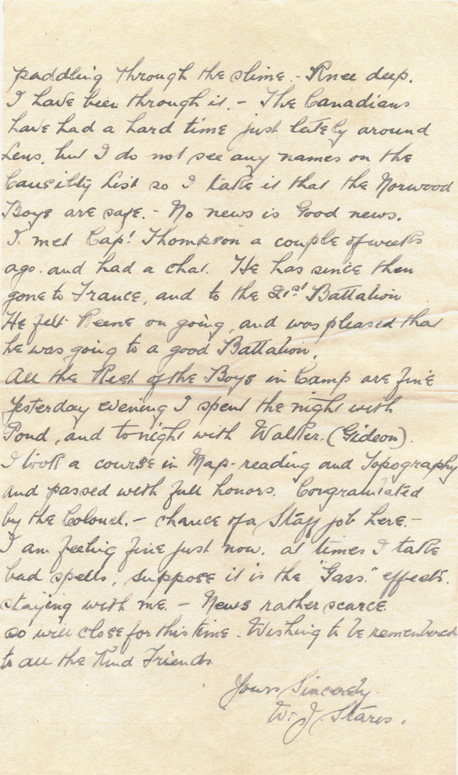 paddling through the slime. - Knee deep.
I have been through it. - The Canadians
have had a hard time just lately around
Lens, but I do not see any names on the
Causilty List so I take it that the Norwood
Boys are safe. - No news is Good news.
I met Cap! Thompson a couple of weeks
ago. and had a chat. He has since then
gone to France, and to the 21st Battalion
He felt Keene on going, and was pleased that
he was going to a good Battalion.
All the Rest of the Boys in Camp are fine
Yesterday evening I spent the night with
Pond, and tonight with Walker. (Gideon).
I took a course in Map-reading and Topography
and passed with full honors. Congratulated
by the Colonel. - chance of a Staff job here -
I am feeling fine just now. at times I take
bad spells, suppose it is the "Gass" effects.
staying with me - News rather scarce
so will close for this time. Wishing to be remembered
to all the Kind Friends
Yours Sincerely.
W. J Stares.